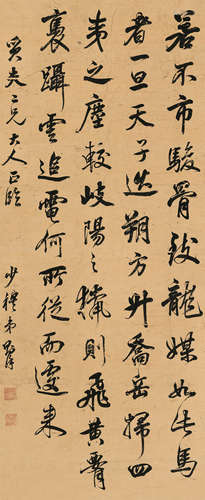 若不市駿骨致龍媒如此馬
者一旦天子巡朔方升喬岳掃四
夷之塵較岐陽之獵則飛黃騕
褭躡雲追電何所從而遽來
奚炎二兄大人正臨
少穆弟